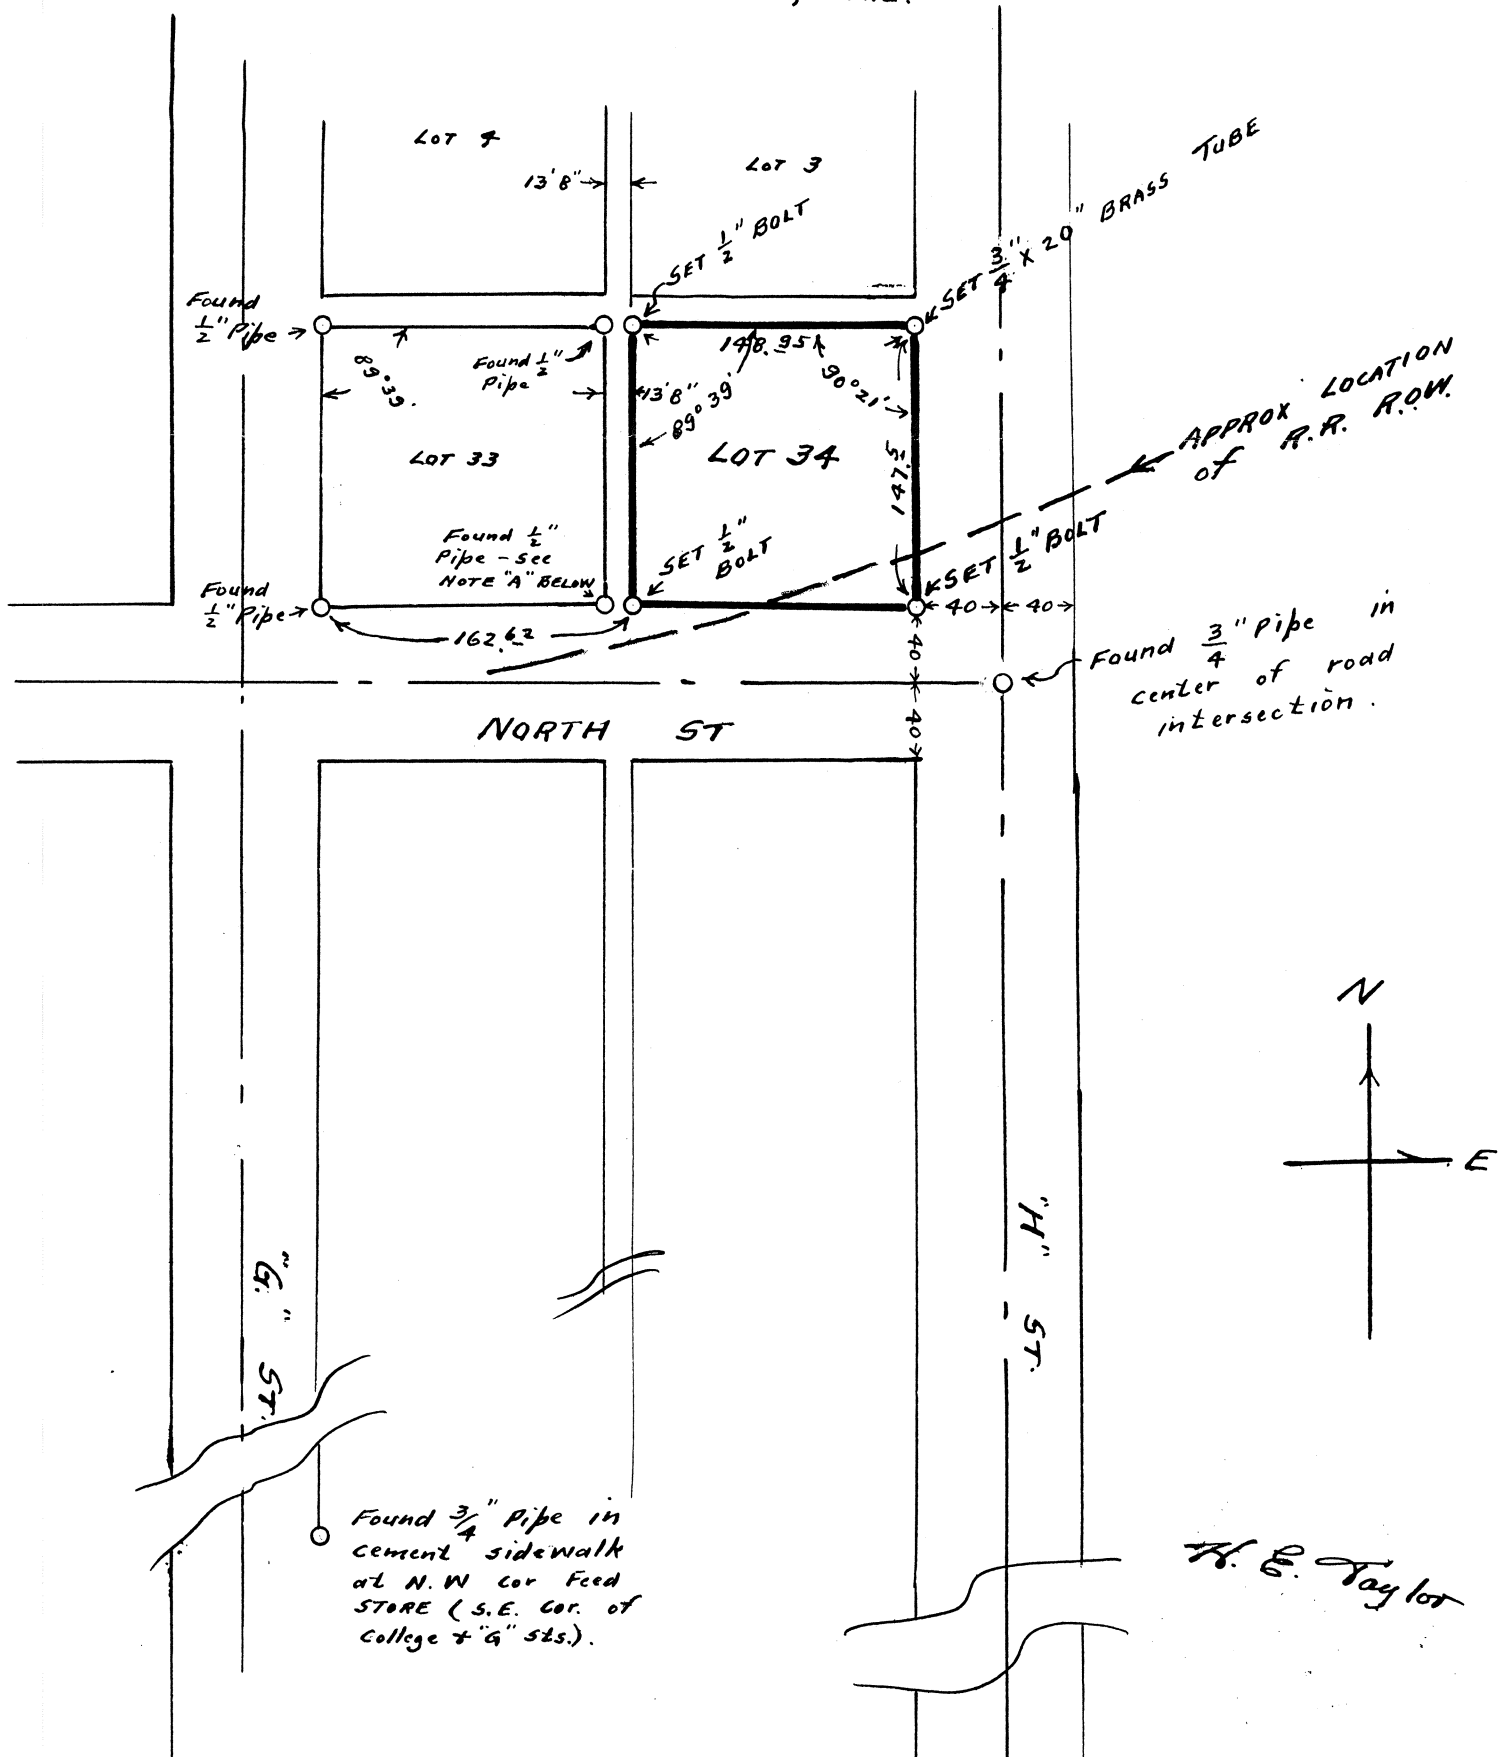 LOT 4
13'8"
LOT 3
SET 1/2" BOLT
SET 3/4" x 20" BRASS TUBE
Found
1/2" Pipe
89°39'
Found 1/2"
Pipe
148.95
13'8"
89°39'
90°21'
147.5
LOT 33
LOT 34
APPROX LOCATION
of R.R. R.O.W.
Found 1/2"
Pipe - see
NOTE "A" BELOW
SET 1/2"
BOLT
SET 1/2" BOLT
Found
1/2" Pipe
162.62
40
40
40
40
Found 3/4" Pipe in
center of road
intersection.
NORTH ST
N
E
"G." ST.
"H" ST.
Found 3/4" Pipe in
cement sidewalk
at N.W cor Feed
STORE (S.E. Cor. of
College & "G" sts.).
H. E. Taylor